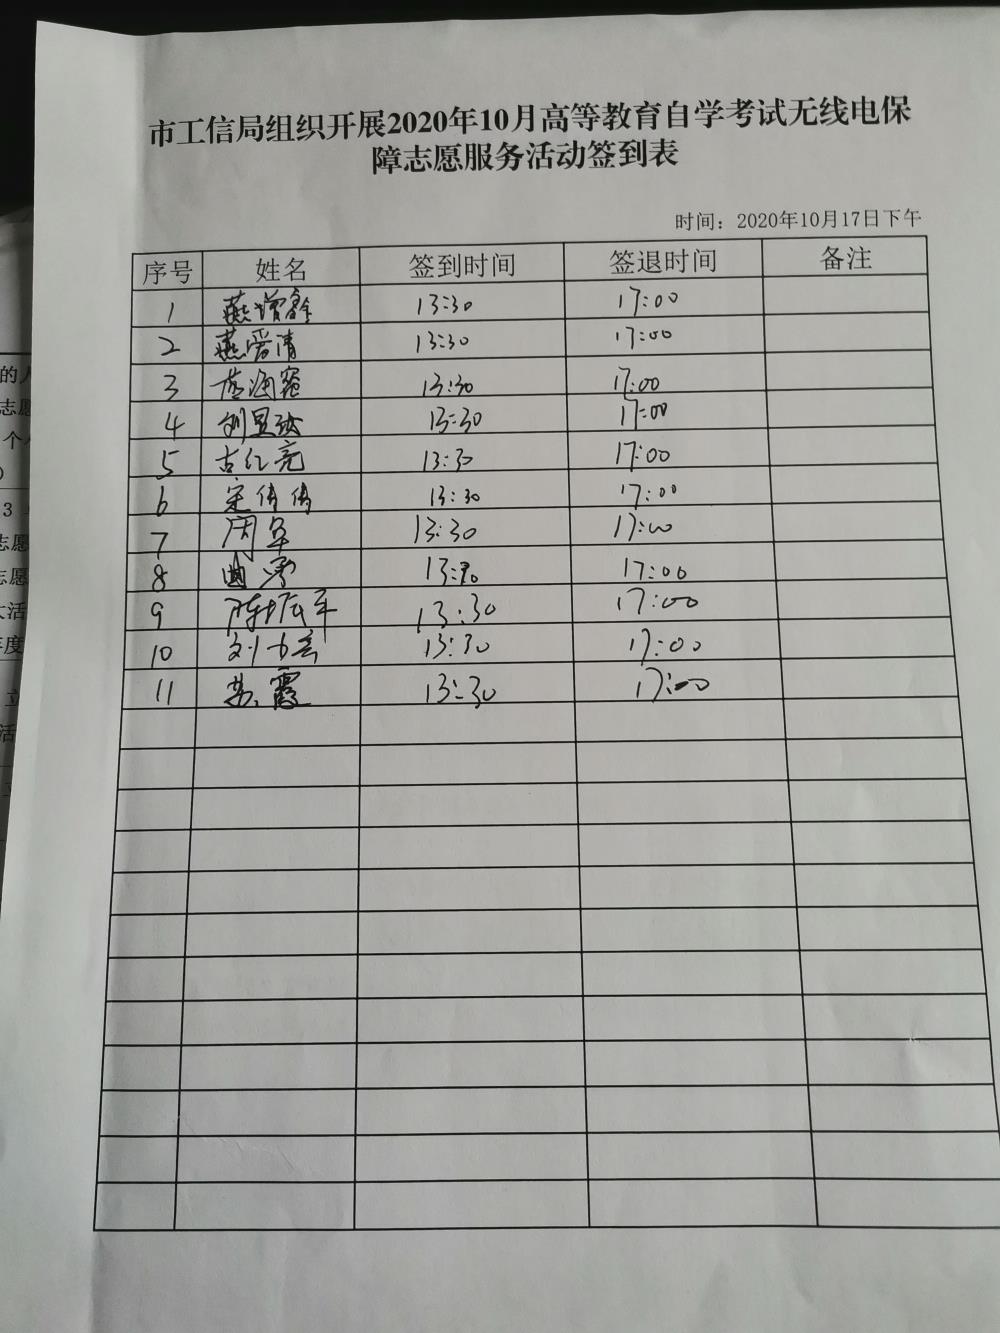 市工信局组织开展2020年10月高等教育自学考试无线电保
障志愿服务活动签到表
时间：2020年10月17日下午
序号 姓名 签到时间 签退时间 备注
1 13:30 17:00
2 燕爱清 13:30 17:00
3 13:30 17:00
4 13:30 17:00
5 古红亮 13:30 17:00
6 宋倩倩 13:30 17:00
7 周军 13:30 17:00
8 曲 13:30 17:00
9 13:30 17:00
10 13:30 17:00
11 苏霞 13:30 17:00
的人
志愿
个人
3
志愿
志愿
大活
年度
立
活